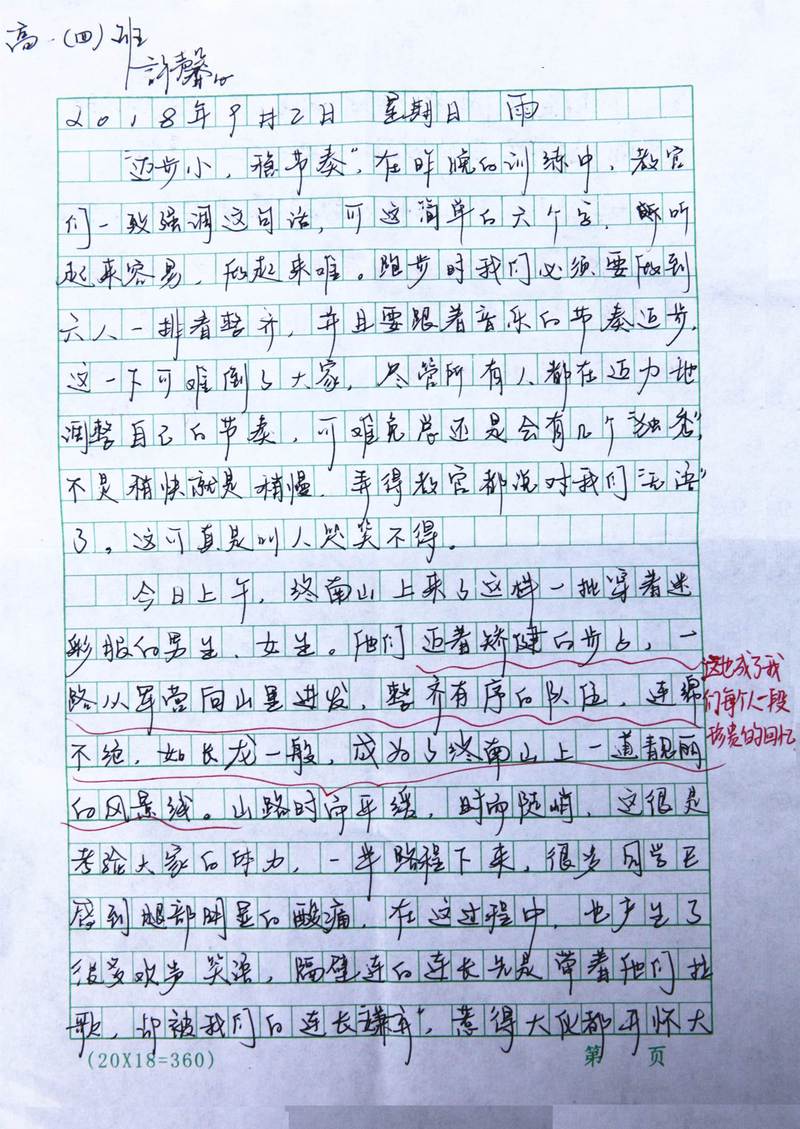 高一(四)班
許馨
2018年9月2日 星期日 雨
"迈步小，稳节奏"，在昨晚的训练中，教官
们一致强调这句话，可这简单的六个字，听
起来容易，做起来难。跑步时我们必须要做到
六人一排看整齐，并且要跟着音乐的节奏迈步，
这一下可难倒了大家，尽管所有人都在迈力地
调整自己的节奏，可难免总还是会有几个"独秀"，
不是稍快就是稍慢，弄得教官都说对我们"无语"
了。这可真是叫人哭笑不得。
今日上午，终南山上来了这样一批穿着迷
彩服的男生、女生。他们迈着矫健的步占，一
路从军营向山里进发，整齐有序的队伍，连绵
不绝，如长龙一般，成为了终南山上一道靓丽
的风景线。山路时而平缓，时而陡峭，这很是
考验大家的体力，一半路程下来，很多同学已
感到腿部明显的酸痛，在这过程中，也产生了
很多欢声笑语，隔壁连的连长先是带着他们拉
歌，却被我们的连长"，惹得大伙都开怀大
这也成了我
们每个人一段
珍贵的回忆
(20X18=360)
第 页